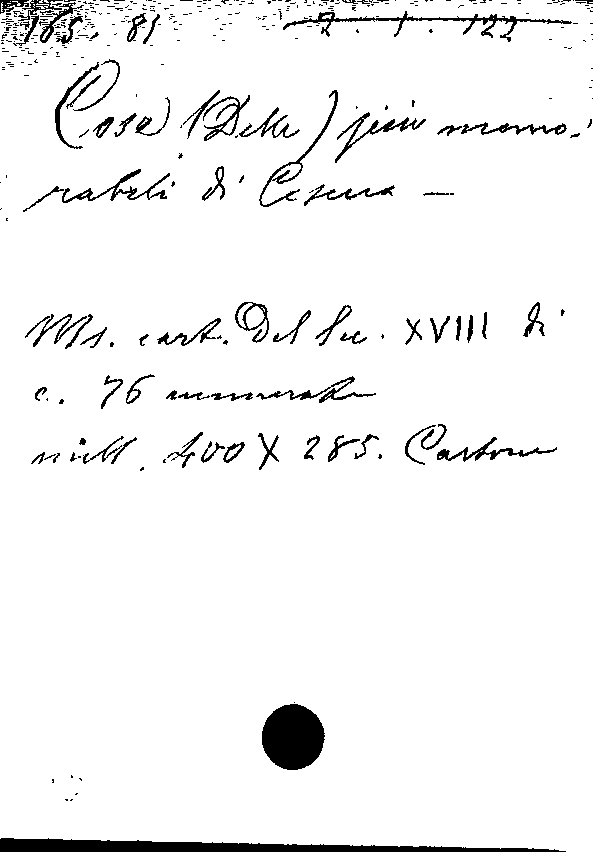 165. 81 7. 1. 122
Cose (Delle) più memo-
rabili di Cesena —
Ms. cart. del Sec. XVIII di
c. 76 numerate
mill. 400 X 285. Cartone